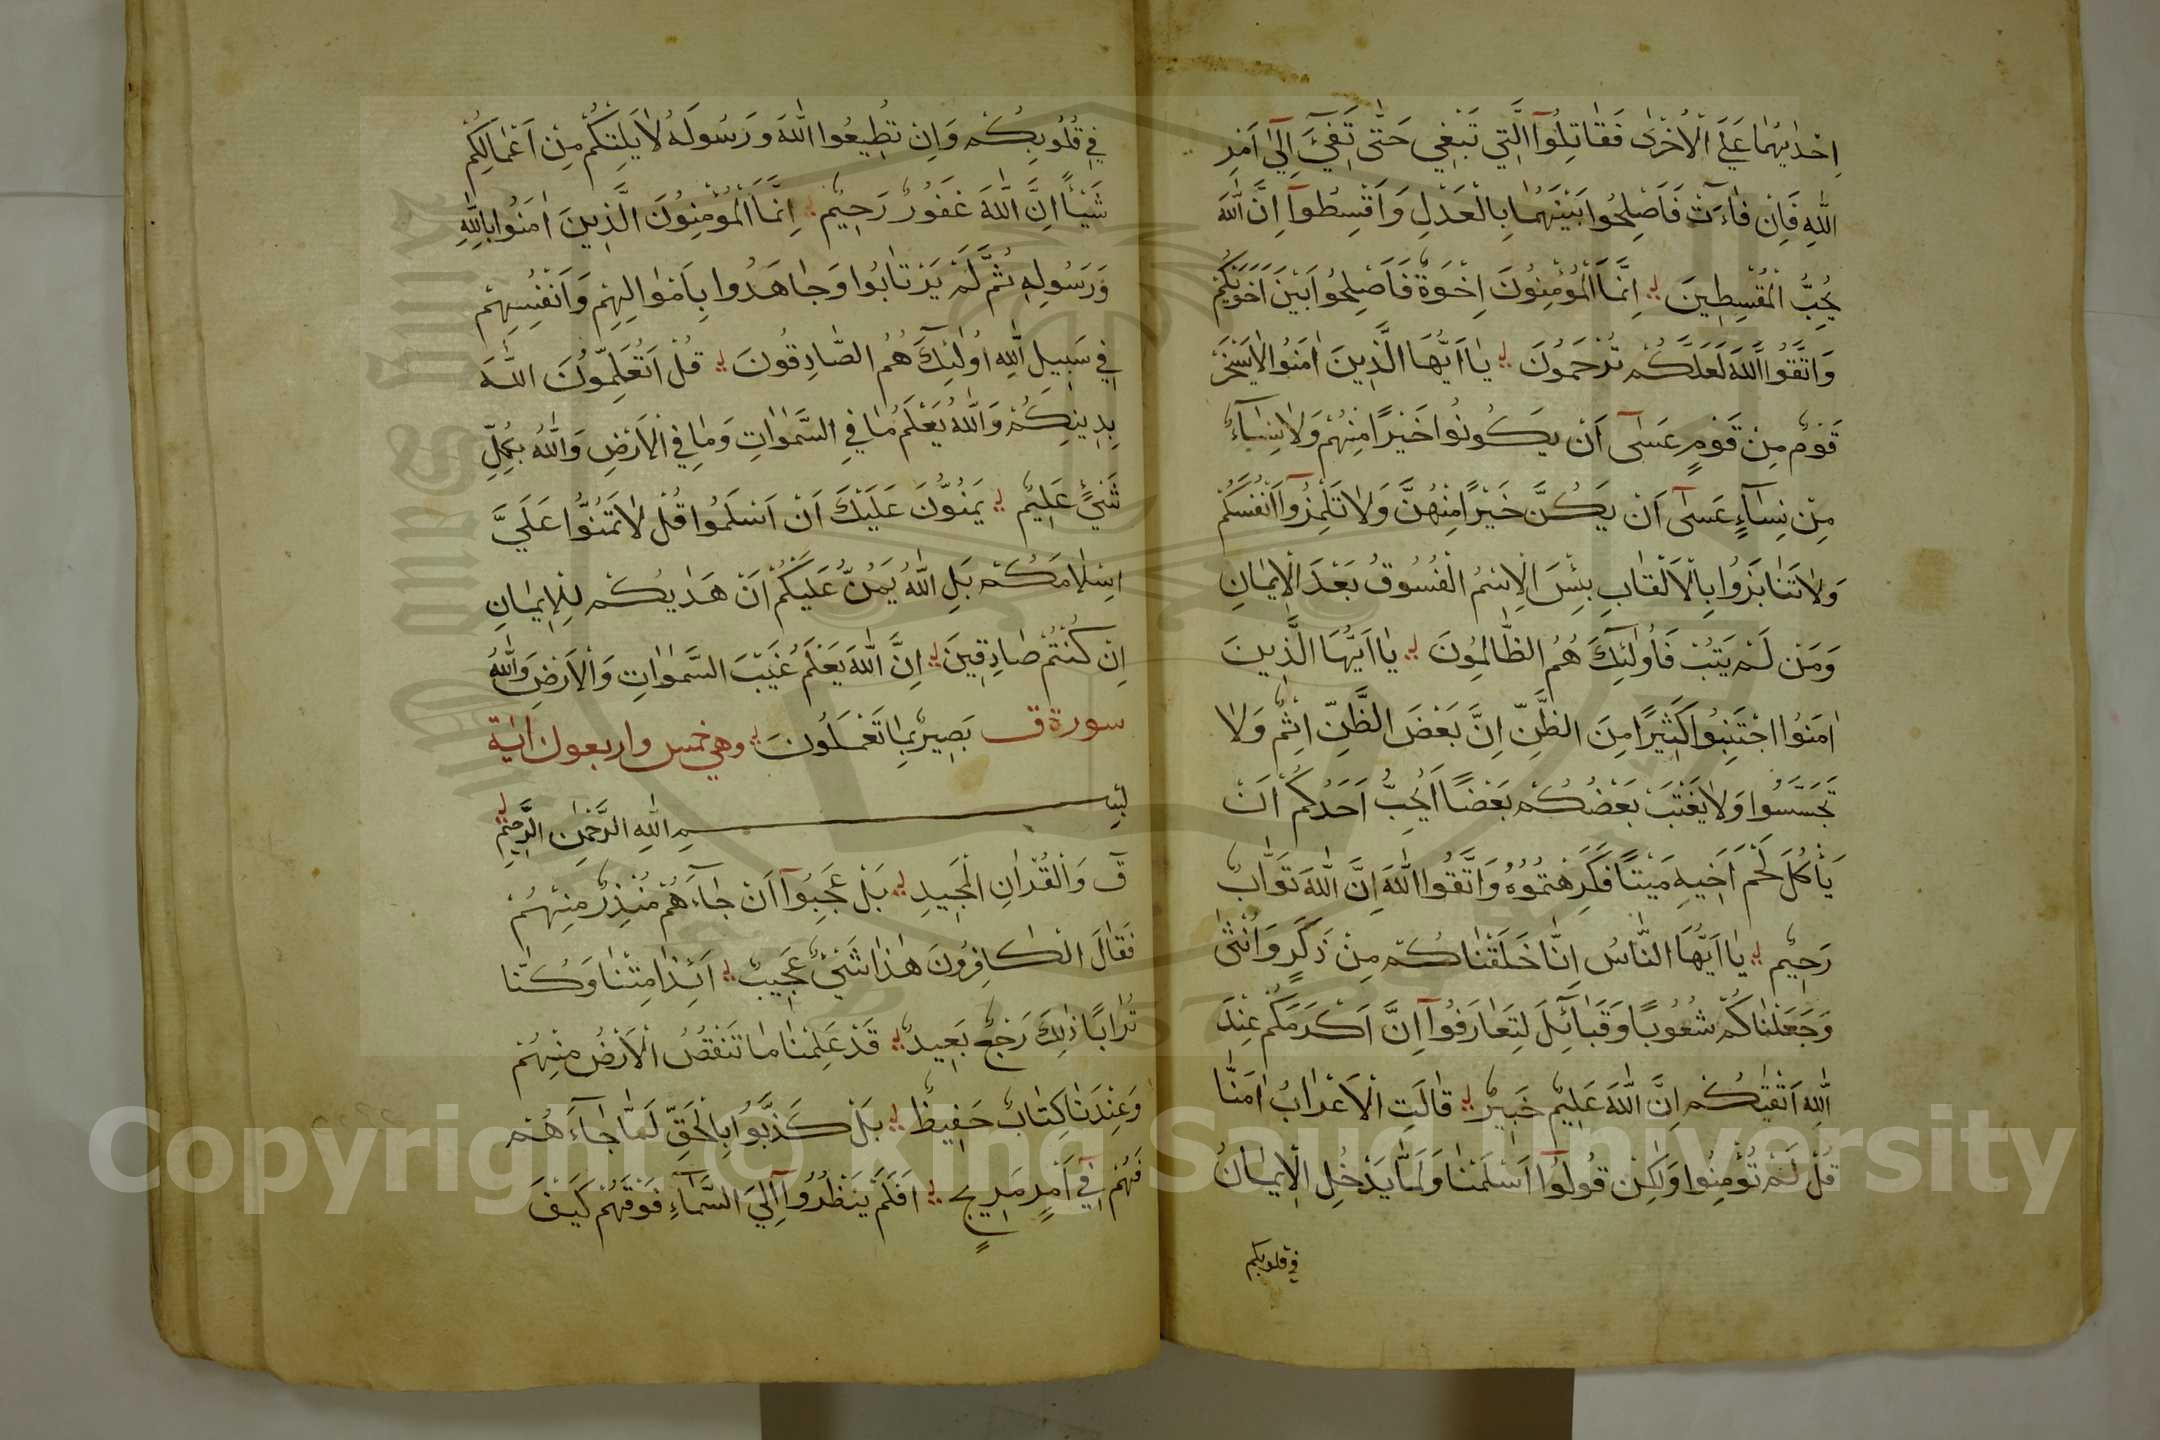 اِحْدٰيهُمَا عَلَى الْاُخْرٰى فَقَاتِلُوا الَّتِي تَبْغِي حَتّٰى تَفِيَٓٔ اِلٰٓى اَمْرِ
اللّٰهِ فَاِنْ فَاءَتْ فَاَصْلِحُوا بَيْنَهُمَا بِالْعَدْلِ وَاَقْسِطُوٓا اِنَّ اللّٰهَ
يُحِبُّ الْمُقْسِطِينَ اِنَّمَا الْمُؤْمِنُونَ اِخْوَةٌ فَاَصْلِحُوا بَيْنَ اَخَوَيْكُمْ
وَاتَّقُوا اللّٰهَ لَعَلَّكُمْ تُرْحَمُونَ يَا اَيُّهَا الَّذِينَ اٰمَنُوا لَا يَسْخَرْ
قَوْمٌ مِنْ قَوْمٍ عَسٰٓى اَنْ يَكُونُوا خَيْرًا مِنْهُمْ وَلَا نِسَآءٌ
مِنْ نِسَآءٍ عَسٰٓى اَنْ يَكُنَّ خَيْرًا مِنْهُنَّ وَلَا تَلْمِزُوٓا اَنْفُسَكُمْ
وَلَا تَنَابَزُوا بِالْاَلْقَابِ بِئْسَ الْاِسْمُ الْفُسُوقُ بَعْدَ الْاِيمَانِ
وَمَنْ لَمْ يَتُبْ فَاُولٰٓئِكَ هُمُ الظَّالِمُونَ يَا اَيُّهَا الَّذِينَ
اٰمَنُوا اجْتَنِبُوا كَثِيرًا مِنَ الظَّنِّ اِنَّ بَعْضَ الظَّنِّ اِثْمٌ وَلَا
تَجَسَّسُوا وَلَا يَغْتَبْ بَعْضُكُمْ بَعْضًا اَيُحِبُّ اَحَدُكُمْ اَنْ
يَأْكُلَ لَحْمَ اَخِيهِ مَيْتًا فَكَرِهْتُمُوهُ وَاتَّقُوا اللّٰهَ اِنَّ اللّٰهَ تَوَّابٌ
رَحِيمٌ يَا اَيُّهَا النَّاسُ اِنَّا خَلَقْنَاكُمْ مِنْ ذَكَرٍ وَاُنْثٰى
وَجَعَلْنَاكُمْ شُعُوبًا وَقَبَآئِلَ لِتَعَارَفُوٓا اِنَّ اَكْرَمَكُمْ عِنْدَ
اللّٰهِ اَتْقٰيكُمْ اِنَّ اللّٰهَ عَلِيمٌ خَبِيرٌ قَالَتِ الْاَعْرَابُ اٰمَنَّا
قُلْ لَمْ تُؤْمِنُوا وَلٰكِنْ قُولُوٓا اَسْلَمْنَا وَلَمَّا يَدْخُلِ الْاِيمَانُ
في قلوبكم
فِي قُلُوبِكُمْ وَاِنْ تُطِيعُوا اللّٰهَ وَرَسُولَهُ لَا يَلِتْكُمْ مِنْ اَعْمَالِكُمْ
شَيْـًٔا اِنَّ اللّٰهَ غَفُورٌ رَحِيمٌ اِنَّمَا الْمُؤْمِنُونَ الَّذِينَ اٰمَنُوا بِاللّٰهِ
وَرَسُولِهِ ثُمَّ لَمْ يَرْتَابُوا وَجَاهَدُوا بِاَمْوَالِهِمْ وَاَنْفُسِهِمْ
فِي سَبِيلِ اللّٰهِ اُولٰٓئِكَ هُمُ الصَّادِقُونَ قُلْ اَتُعَلِّمُونَ اللّٰهَ
بِدِينِكُمْ وَاللّٰهُ يَعْلَمُ مَا فِي السَّمٰوَاتِ وَمَا فِي الْاَرْضِ وَاللّٰهُ بِكُلِّ
شَيْءٍ عَلِيمٌ يَمُنُّونَ عَلَيْكَ اَنْ اَسْلَمُوا قُلْ لَا تَمُنُّوا عَلَيَّ
اِسْلَامَكُمْ بَلِ اللّٰهُ يَمُنُّ عَلَيْكُمْ اَنْ هَدٰيكُمْ لِلْاِيمَانِ
اِنْ كُنْتُمْ صَادِقِينَ اِنَّ اللّٰهَ يَعْلَمُ غَيْبَ السَّمٰوَاتِ وَالْاَرْضِ وَاللّٰهُ
سورة ق بَصِيرٌ بِمَا تَعْمَلُونَ وهي خمس واربعون اية
بِسْمِ اللّٰهِ الرَّحْمٰنِ الرَّحِيمِ
قٓ وَالْقُرْاٰنِ الْمَجِيدِ بَلْ عَجِبُوٓا اَنْ جَآءَهُمْ مُنْذِرٌ مِنْهُمْ
فَقَالَ الْكَافِرُونَ هٰذَا شَيْءٌ عَجِيبٌ اَئِذَا مِتْنَا وَكُنَّا
تُرَابًا ذٰلِكَ رَجْعٌ بَعِيدٌ قَدْ عَلِمْنَا مَا تَنْقُصُ الْاَرْضُ مِنْهُمْ
وَعِنْدَنَا كِتَابٌ حَفِيظٌ بَلْ كَذَّبُوا بِالْحَقِّ لَمَّا جَآءَهُمْ
فَهُمْ فِيٓ اَمْرٍ مَرِيجٍ اَفَلَمْ يَنْظُرُوٓا اِلَى السَّمَآءِ فَوْقَهُمْ كَيْفَ
Copyright © King Saud University